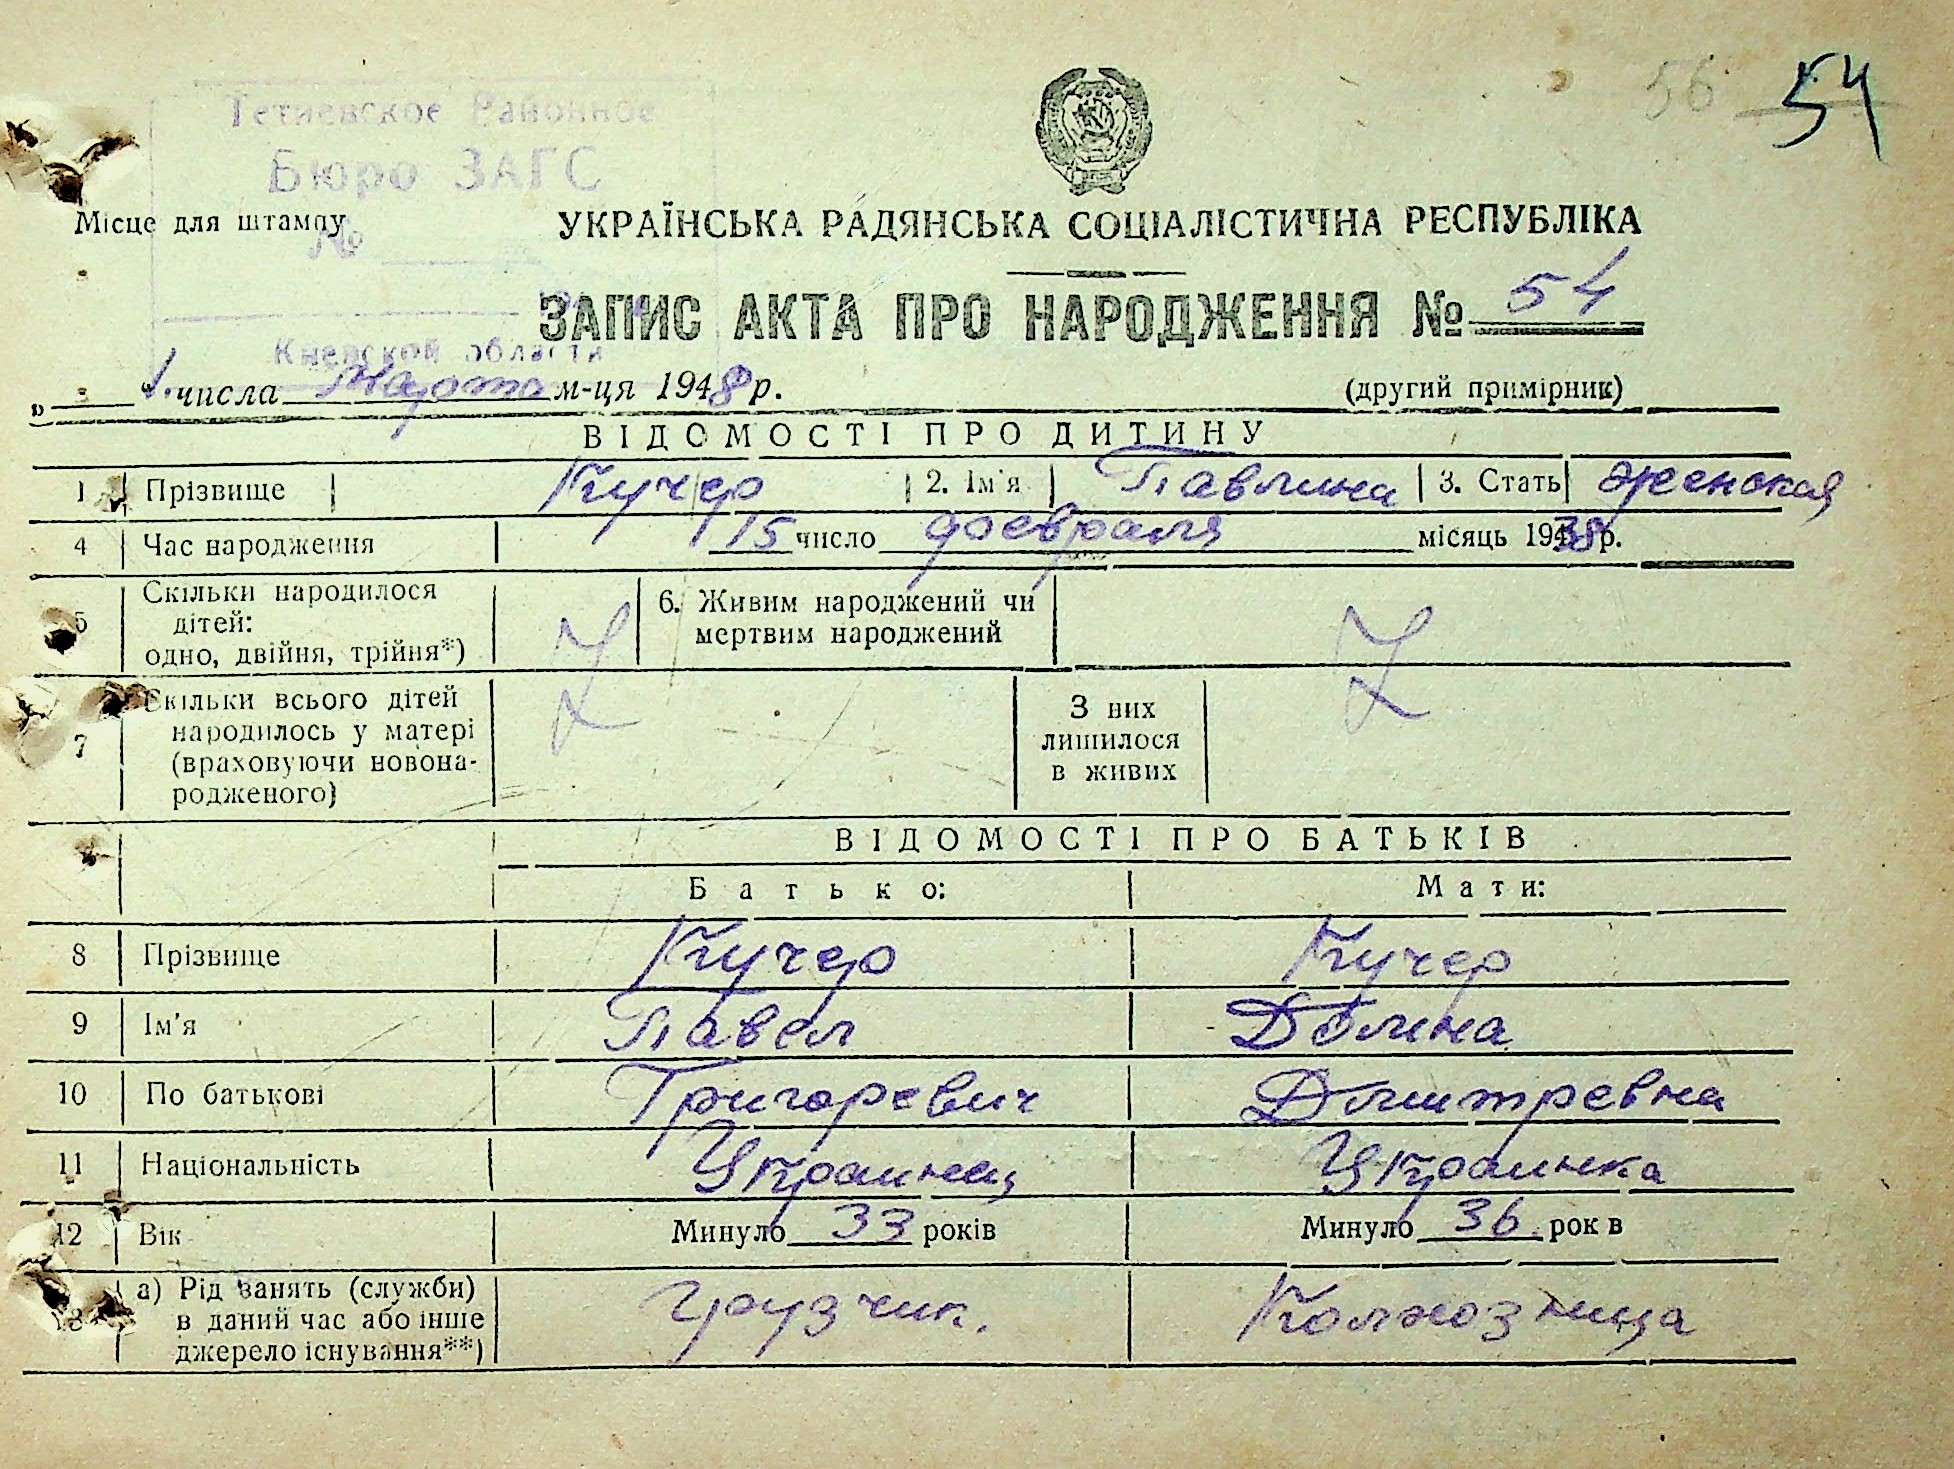 56 54
Тетиевское Районное
Бюро ЗАГС
Місце для штампу
№
УКРАЇНСЬКА РАДЯНСЬКА СОЦІАЛІСТИЧНА РЕСПУБЛІКА
ЗАПИС АКТА ПРО НАРОДЖЕННЯ № 54
Киевской области
числа Марта м-ця 1948 р. (другий примірник)
ВІДОМОСТІ ПРО ДИТИНУ
1 Прізвище Кучер 2. Ім'я Павлина 3. Стать женская
4 Час народження 15 число февраля місяць 1938 р.
5 Скільки народилося дітей: одно, двійня, трійня*) Z 6. Живим народжений чи мертвим народжений Z
7 Скільки всього дітей народилось у матері (враховуючи новонародженого) З них лишилося в живих
ВІДОМОСТІ ПРО БАТЬКІВ
Батько: Мати:
8 Прізвище Кучер Кучер
9 Ім'я Павел Долина
10 По батькові Григоревич Дмитревна
11 Національність Украинец Украинка
12 Вік Минуло 33 років Минуло 36 рок в
13 а) Рід занять (служби) в даний час або інше джерело існування**) грузчик. Колхозница